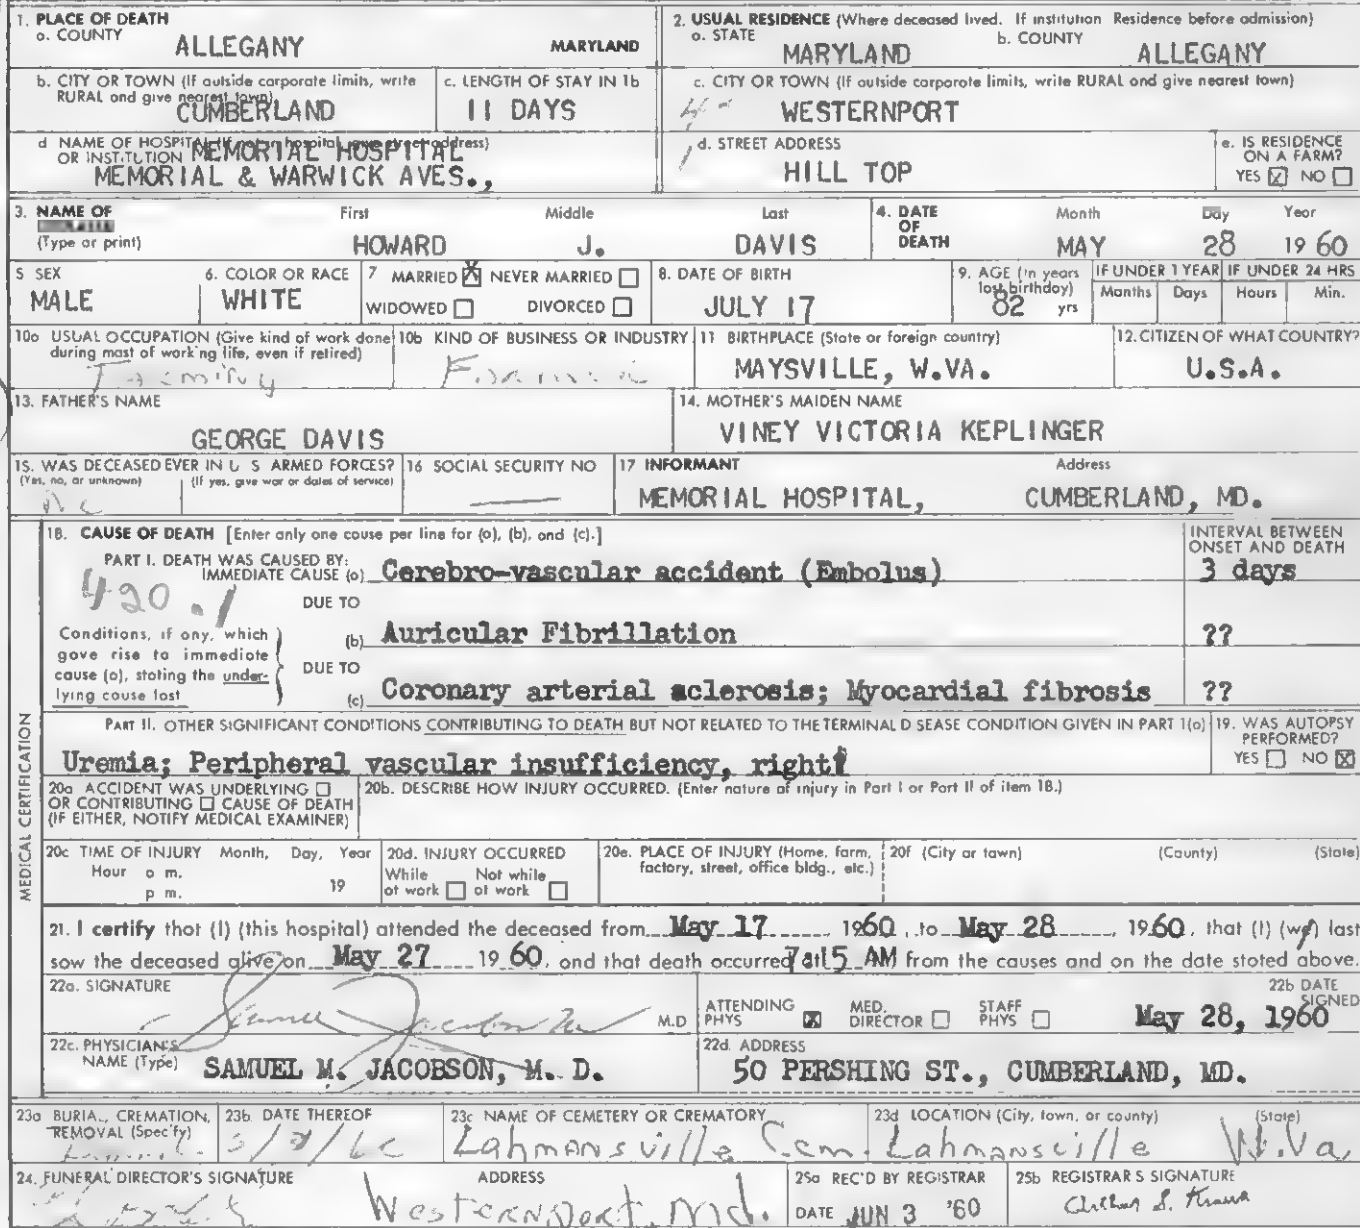 1. PLACE OF DEATH
a. COUNTY
ALLEGANY MARYLAND
2. USUAL RESIDENCE (Where deceased lived. If institution Residence before admission)
a. STATE b. COUNTY
MARYLAND ALLEGANY
b. CITY OR TOWN (If outside corporate limits, write
RURAL and give nearest town)
CUMBERLAND
c. LENGTH OF STAY IN 1b
11 DAYS
c. CITY OR TOWN (If outside corporate limits, write RURAL and give nearest town)
WESTERNPORT
d NAME OF HOSPITAL (If not in hospital, give street address)
OR INSTITUTION MEMORIAL HOSPITAL
MEMORIAL & WARWICK AVES.,
d. STREET ADDRESS
HILL TOP
e. IS RESIDENCE
ON A FARM?
YES ☒ NO ☐
3. NAME OF First Middle Last
(Type or print) HOWARD J. DAVIS
4. DATE OF DEATH Month Day Year
MAY 28 1960
5 SEX
MALE
6. COLOR OR RACE
WHITE
7 MARRIED ☒ NEVER MARRIED ☐
WIDOWED ☐ DIVORCED ☐
8. DATE OF BIRTH
JULY 17
9. AGE (In years
last birthday)
82 yrs
IF UNDER 1 YEAR IF UNDER 24 HRS
Months Days Hours Min.
10a USUAL OCCUPATION (Give kind of work done
during most of working life, even if retired)
Farming
10b KIND OF BUSINESS OR INDUSTRY
11 BIRTHPLACE (State or foreign country)
MAYSVILLE, W.VA.
12. CITIZEN OF WHAT COUNTRY?
U.S.A.
13. FATHER'S NAME
GEORGE DAVIS
14. MOTHER'S MAIDEN NAME
VINEY VICTORIA KEPLINGER
15. WAS DECEASED EVER IN U S ARMED FORCES?
(Yes, no, or unknown) (If yes, give war or dates of service)
No
16 SOCIAL SECURITY NO
17 INFORMANT Address
MEMORIAL HOSPITAL, CUMBERLAND, MD.
MEDICAL CERTIFICATION
18. CAUSE OF DEATH [Enter only one cause per line for (a), (b), and (c).]
INTERVAL BETWEEN
ONSET AND DEATH
PART I. DEATH WAS CAUSED BY:
IMMEDIATE CAUSE (a) Cerebro-vascular accident (Embolus) 3 days
420.1
DUE TO
Conditions, if any, which
gave rise to immediate
cause (a), stating the under-
lying cause last
(b) Auricular Fibrillation ??
DUE TO
(c) Coronary arterial sclerosis; Myocardial fibrosis ??
PART II. OTHER SIGNIFICANT CONDITIONS CONTRIBUTING TO DEATH BUT NOT RELATED TO THE TERMINAL DISEASE CONDITION GIVEN IN PART I(a)
Uremia; Peripheral vascular insufficiency, right
19. WAS AUTOPSY
PERFORMED?
YES ☐ NO ☒
20a ACCIDENT WAS UNDERLYING ☐
OR CONTRIBUTING ☐ CAUSE OF DEATH
(IF EITHER, NOTIFY MEDICAL EXAMINER)
20b. DESCRIBE HOW INJURY OCCURRED. (Enter nature of injury in Part I or Part II of item 18.)
20c TIME OF INJURY Month, Day, Year
Hour a m.
p m. 19
20d. INJURY OCCURRED
While Not while
at work ☐ at work ☐
20e. PLACE OF INJURY (Home, farm,
factory, street, office bldg., etc.)
20f (City or town) (County) (State)
21. I certify that (I) (this hospital) attended the deceased from May 17 1960, to May 28 1960, that (I) (we) last
saw the deceased alive on May 27 1960, and that death occurred at 7:15 AM from the causes and on the date stated above.
22a. SIGNATURE
Samuel Jacobson M.D
ATTENDING PHYS ☒ MED. DIRECTOR ☐ STAFF PHYS ☐
22b DATE SIGNED
May 28, 1960
22c. PHYSICIAN'S
NAME (Type) SAMUEL M. JACOBSON, M. D.
22d. ADDRESS
50 PERSHING ST., CUMBERLAND, MD.
23a BURIAL, CREMATION,
REMOVAL (Specify)
23b. DATE THEREOF
23c NAME OF CEMETERY OR CREMATORY
Lahmansville Cem.
23d LOCATION (City, town, or county) (State)
Lahmansville W.Va.
24. FUNERAL DIRECTOR'S SIGNATURE ADDRESS
Westernport, Md.
25a REC'D BY REGISTRAR
DATE JUN 3 '60
25b REGISTRARS SIGNATURE
Arthur S. Kraus